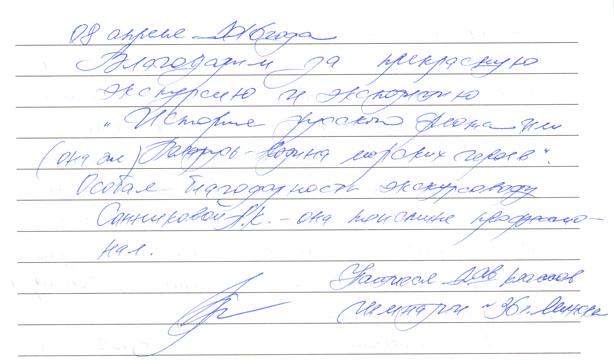 08 апреля 2016 года
Благодарим за прекрасную
экскурсию и экспозицию
„История русского флота или
(она же) - родина морских героев“.
Особая благодарность экскурсоводу
Санниковой А.К. - она поистине професссио-
нал.
Учащиеся классов
гимназии №36 г. Минска